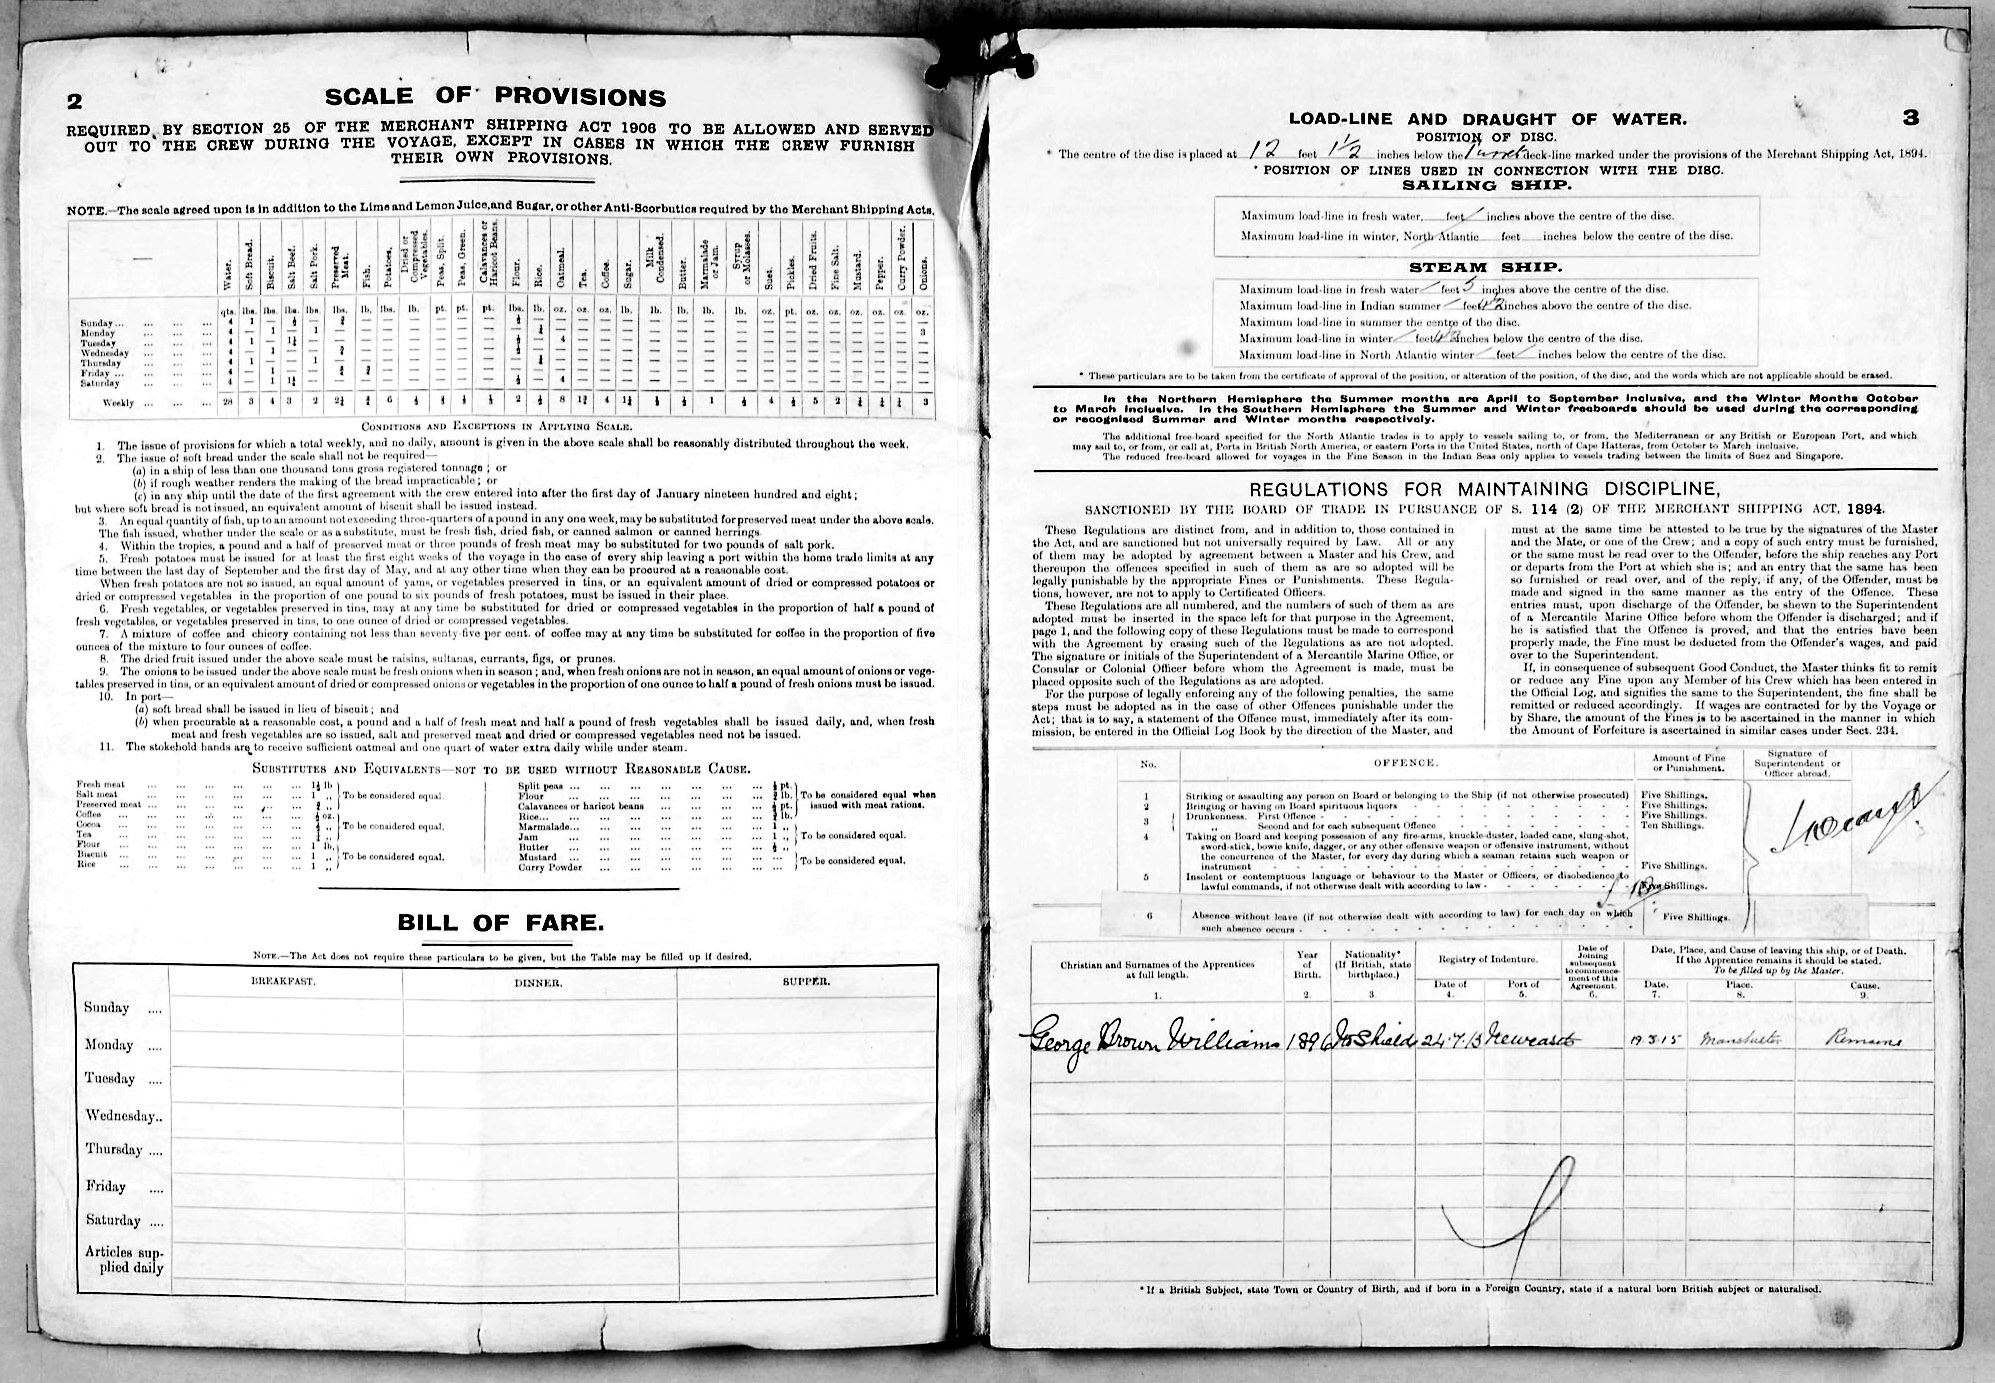 2
SCALE OF PROVISIONS
REQUIRED BY SECTION 25 OF THE MERCHANT SHIPPING ACT 1906 TO BE ALLOWED AND SERVED
OUT TO THE CREW DURING THE VOYAGE, EXCEPT IN CASES IN WHICH THE CREW FURNISH
THEIR OWN PROVISIONS.
NOTE.—The scale agreed upon is in addition to the Lime and Lemon Juice, and Sugar, or other Anti-Scorbutics required by the Merchant Shipping Acts.
Water. Soft Bread. Biscuit. Salt Beef. Salt Pork. Preserved Meat. Fish. Potatoes. Dried or Compressed Vegetables. Peas, Split. Peas, Green. Calavances or Haricot Beans. Flour. Rice. Oatmeal. Tea. Coffee. Sugar. Milk Condensed. Butter. Marmalade or Jam. Syrup or Molasses. Suet. Pickles. Dried Fruits. Fine Salt. Mustard. Pepper. Curry Powder. Onions.
qts. lbs. lbs. lbs. lbs. lbs. lb. lbs. lb. pt. pt. pt. lbs. lb. oz. oz. oz. lb. lb. lb. lb. lb. oz. pt. oz. oz. oz. oz. oz. oz.
Sunday... 4 1 — ½ — ¾ — — — — — — ½ — — — — — — — — — — — — — — — — —
Monday 4 — 1 — 1 — — — — — — — — — — — — — — — — — — — — — — — 3
Tuesday 4 1 — — — — — — — — — ½ — 4 — — — — — — — — — — — — — — —
Wednesday 4 — 1 — — ¾ — — — — — — ½ — — — — — — — — — — — — — — — — —
Thursday 4 1 — — 1 — — — — — — — — — — — — — — — — — — — — — — — —
Friday ... 4 — 1 — — — — — — — — — — — — — — — — — — — — — — — — —
Saturday 4 — 1 — — — — — — — — ½ — 4 — — — — — — — — — — — — — — —
Weekly 28 3 4 3 2 2¼ ¾ 6 2 8 4 1 4 5 2 3
CONDITIONS AND EXCEPTIONS IN APPLYING SCALE.
1. The issue of provisions for which a total weekly, and no daily, amount is given in the above scale shall be reasonably distributed throughout the week.
2. The issue of soft bread under the scale shall not be required—
(a) in a ship of less than one thousand tons gross registered tonnage; or
(b) if rough weather renders the making of the bread impracticable; or
(c) in any ship until the date of the first agreement with the crew entered into after the first day of January nineteen hundred and eight;
but where soft bread is not issued, an equivalent amount of biscuit shall be issued instead.
3. An equal quantity of fish, up to an amount not exceeding three-quarters of a pound in any one week, may be substituted for preserved meat under the above scale.
The fish issued, whether under the scale or as a substitute, must be fresh fish, dried fish, or canned salmon or canned herrings.
4. Within the tropics, a pound and a half of preserved meat or three pounds of fresh meat may be substituted for two pounds of salt pork.
5. Fresh potatoes must be issued for at least the first eight weeks of the voyage in the case of every ship leaving a port within the home trade limits at any
time between the last day of September and the first day of May, and at any other time when they can be procured at a reasonable cost.
When fresh potatoes are not so issued, an equal amount of yams, or vegetables preserved in tins, or an equivalent amount of dried or compressed potatoes or
dried or compressed vegetables in the proportion of one pound to six pounds of fresh potatoes, must be issued in their place.
6. Fresh vegetables, or vegetables preserved in tins, may at any time be substituted for dried or compressed vegetables in the proportion of half a pound of
fresh vegetables, or vegetables preserved in tins, to one ounce of dried or compressed vegetables.
7. A mixture of coffee and chicory containing not less than seventy-five per cent. of coffee may at any time be substituted for coffee in the proportion of five
ounces of the mixture to four ounces of coffee.
8. The dried fruit issued under the above scale must be raisins, sultanas, currants, figs, or prunes.
9. The onions to be issued under the above scale must be fresh onions when in season; and, when fresh onions are not in season, an equal amount of onions or vege-
tables preserved in tins, or an equivalent amount of dried or compressed onions or vegetables in the proportion of one ounce to half a pound of fresh onions must be issued.
10. In port—
(a) soft bread shall be issued in lieu of biscuit; and
(b) when procurable at a reasonable cost, a pound and a half of fresh meat and half a pound of fresh vegetables shall be issued daily, and, when fresh
meat and fresh vegetables are so issued, salt and preserved meat and dried or compressed vegetables need not be issued.
11. The stokehold hands are to receive sufficient oatmeal and one quart of water extra daily while under steam.
SUBSTITUTES AND EQUIVALENTS—NOT TO BE USED WITHOUT REASONABLE CAUSE.
Fresh meat 1¼ lb
Salt meat 1 „ To be considered equal.
Preserved meat ... ¾ „
Coffee ½ oz.
Cocoa „ To be considered equal.
Tea ¼ „
Flour 1 lb.
Biscuit 1 „ To be considered equal.
Rice 1 „
Split peas ... pt.
Flour lb. To be considered equal when
Calavances or haricot beans pt. issued with meat rations.
Rice... lb.
Marmalade... 1 „
Jam 1 „ To be considered equal.
Butter ½ „
Mustard To be considered equal.
Curry Powder
BILL OF FARE.
NOTE.—The Act does not require these particulars to be given, but the Table may be filled up if desired.
BREAKFAST. DINNER. SUPPER.
Sunday ....
Monday ....
Tuesday ....
Wednesday..
Thursday ....
Friday ....
Saturday ....
Articles sup-
plied daily
3
LOAD-LINE AND DRAUGHT OF WATER.
POSITION OF DISC.
* The centre of the disc is placed at 12 feet 1½ inches below the Turret deck-line marked under the provisions of the Merchant Shipping Act, 1894.
* POSITION OF LINES USED IN CONNECTION WITH THE DISC.
SAILING SHIP.
Maximum load-line in fresh water, feet inches above the centre of the disc.
Maximum load-line in winter, North Atlantic feet inches below the centre of the disc.
STEAM SHIP.
Maximum load-line in fresh water feet 5 inches above the centre of the disc.
Maximum load-line in Indian summer feet 4½ inches above the centre of the disc.
Maximum load-line in summer the centre of the disc.
Maximum load-line in winter feet 4½ inches below the centre of the disc.
Maximum load-line in North Atlantic winter feet inches below the centre of the disc.
* These particulars are to be taken from the certificate of approval of the position, or alteration of the position, of the disc, and the words which are not applicable should be erased.
In the Northern Hemisphere the Summer months are April to September inclusive, and the Winter Months October
to March inclusive. In the Southern Hemisphere the Summer and Winter freeboards should be used during the corresponding
or recognised Summer and Winter months respectively.
The additional free-board specified for the North Atlantic trades is to apply to vessels sailing to, or from, the Mediterranean or any British or European Port, and which
may sail to, or from, or call at, Ports in British North America, or eastern Ports in the United States, north of Cape Hatteras, from October to March inclusive.
The reduced free-board allowed for voyages in the Fine Season in the Indian Seas only applies to vessels trading between the limits of Suez and Singapore.
REGULATIONS FOR MAINTAINING DISCIPLINE,
SANCTIONED BY THE BOARD OF TRADE IN PURSUANCE OF S. 114 (2) OF THE MERCHANT SHIPPING ACT, 1894.
These Regulations are distinct from, and in addition to, those contained in
the Act, and are sanctioned but not universally required by Law. All or any
of them may be adopted by agreement between a Master and his Crew, and
thereupon the offences specified in such of them as are so adopted will be
legally punishable by the appropriate Fines or Punishments. These Regula-
tions, however, are not to apply to Certificated Officers.
These Regulations are all numbered, and the numbers of such of them as are
adopted must be inserted in the space left for that purpose in the Agreement,
page 1, and the following copy of these Regulations must be made to correspond
with the Agreement by erasing such of the Regulations as are not adopted.
The signature or initials of the Superintendent of a Mercantile Marine Office, or
Consular or Colonial Officer before whom the Agreement is made, must be
placed opposite such of the Regulations as are adopted.
For the purpose of legally enforcing any of the following penalties, the same
steps must be adopted as in the case of other Offences punishable under the
Act; that is to say, a statement of the Offence must, immediately after its com-
mission, be entered in the Official Log Book by the direction of the Master, and
must at the same time be attested to be true by the signatures of the Master
and the Mate, or one of the Crew; and a copy of such entry must be furnished,
or the same must be read over to the Offender, before the ship reaches any Port
or departs from the Port at which she is; and an entry that the same has been
so furnished or read over, and of the reply, if any, of the Offender, must be
made and signed in the same manner as the entry of the Offence. These
entries must, upon discharge of the Offender, be shewn to the Superintendent
of a Mercantile Marine Office before whom the Offender is discharged; and if
he is satisfied that the Offence is proved, and that the entries have been
properly made, the Fine must be deducted from the Offender's wages, and paid
over to the Superintendent.
If, in consequence of subsequent Good Conduct, the Master thinks fit to remit
or reduce any Fine upon any Member of his Crew which has been entered in
the Official Log, and signifies the same to the Superintendent, the fine shall be
remitted or reduced accordingly. If wages are contracted for by the Voyage or
by Share, the amount of the Fines is to be ascertained in the manner in which
the Amount of Forfeiture is ascertained in similar cases under Sect. 234.
No. OFFENCE. Amount of Fine or Punishment. Signature of Superintendent or Officer abroad.
1 Striking or assaulting any person on Board or belonging to the Ship (if not otherwise prosecuted) Five Shillings.
2 Bringing or having on Board spirituous liquors Five Shillings.
3 Drunkenness. First Offence Five Shillings.
„ Second and for each subsequent Offence Ten Shillings.
4 Taking on Board and keeping possession of any fire-arms, knuckle-duster, loaded cane, slung-shot,
sword-stick, bowie knife, dagger, or any other offensive weapon or offensive instrument, without
the concurrence of the Master, for every day during which a seaman retains such weapon or
instrument Five Shillings.
5 Insolent or contemptuous language or behaviour to the Master or Officers, or disobedience to
lawful commands, if not otherwise dealt with according to law Five Shillings.
6 Absence without leave (if not otherwise dealt with according to law) for each day on which Five Shillings.
such absence occurs
Christian and Surnames of the Apprentices at full length. 1. Year of Birth. 2. Nationality* (If British, state birthplace.) 3. Registry of Indenture. Date of 4. Port of 5. Date of Joining subsequent to commencement of this Agreement. 6.
Date, Place, and Cause of leaving this ship, or of Death. If the Apprentice remains it should be stated. To be filled up by the Master. Date. 7. Place. 8. Cause. 9.
George Brown Williams 1896 No Shields 24.7.13 Newcastle 19.3.15 Manchester Remains
* If a British Subject, state Town or Country of Birth, and if born in a Foreign Country, state if a natural born British subject or naturalised.